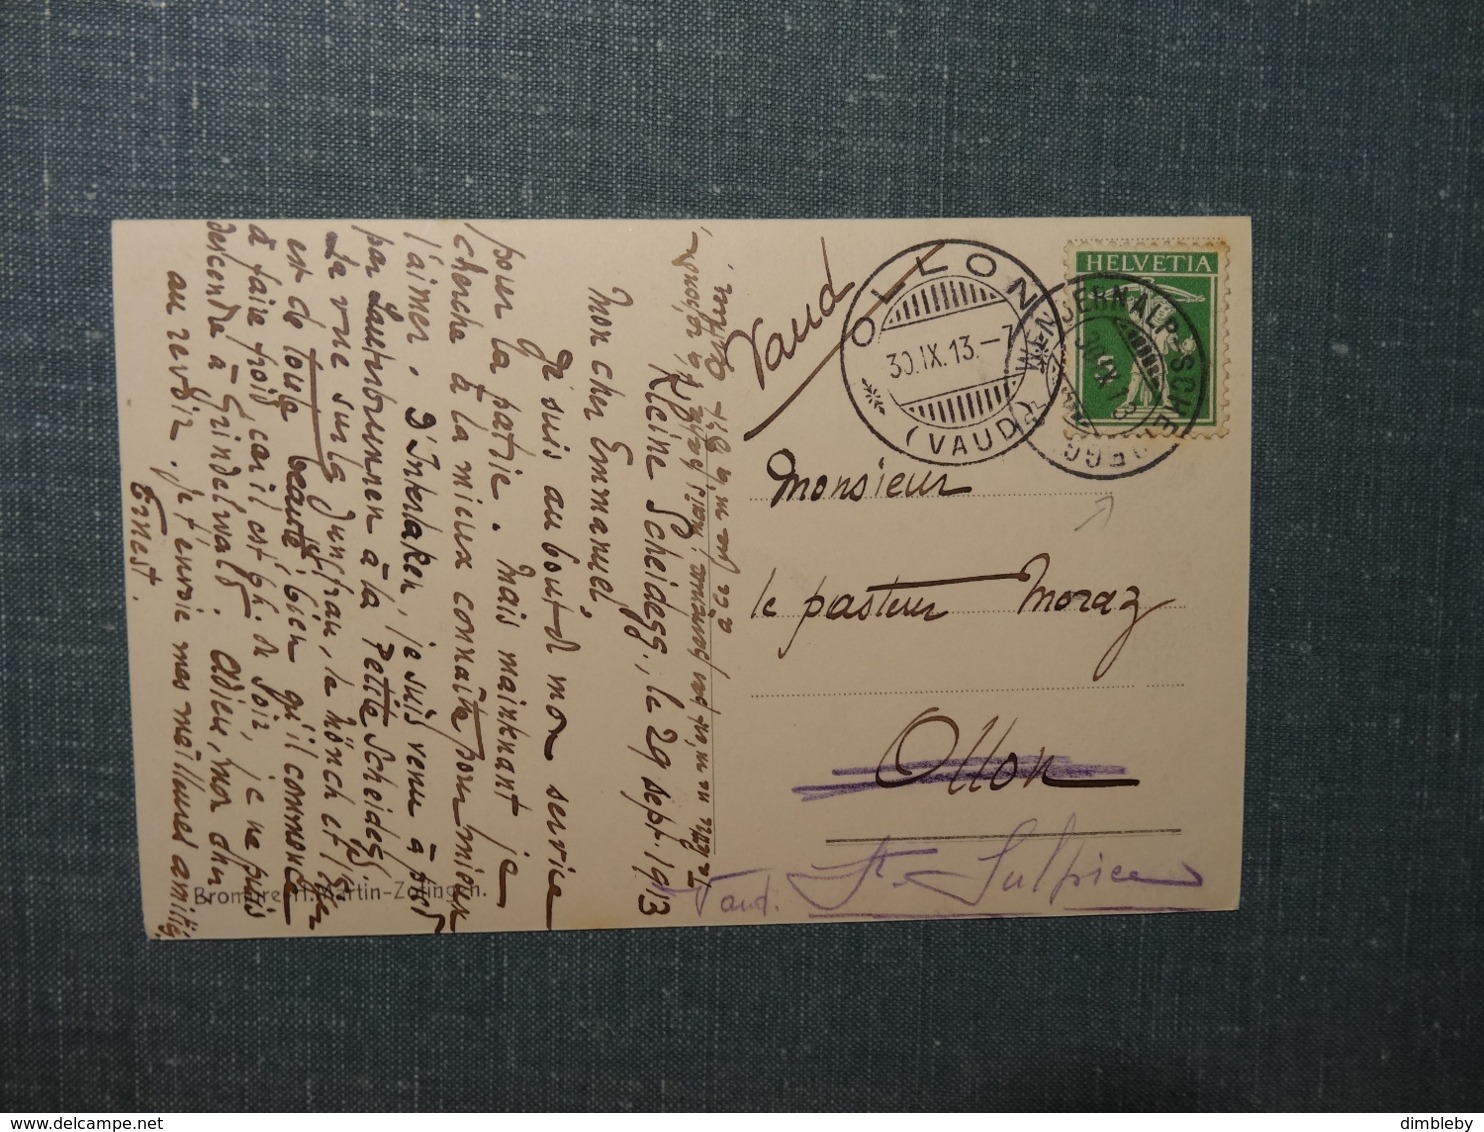 Kleine Scheidegg, le 29 sept. 1913
Mon cher Emmanuel,
Je suis au bout d mon service
pour la patrie. Mais maintenant je
cherche à la mieux connaître pour mieux
l'aimer. D'Interlaken, je suis venu à pied
par Lauterbrunnen à la Petite Scheidegg.
La vue sur la Jungfrau, le Mönch et
est de toute beauté, bien qu'il commence
à faire froid, car il est 6h. du soir, je ne puis
descendre à Grindelwald. Adieu, mon cher
au revoir. Je t'envoie mes meilleures amitiés
Ernest.
Ta lettre ne m'est pas parvenue, mais
à ce que m'a dit
Vaud
OLLON
30.IX.13.–7
(VAUD)
HELVETIA
WENGERNALP-SCHEIDEGG
Monsieur
le pasteur Moraz
Ollon
Vaud. St. Sulpice
Bromure H. Martin-Zofingen.
dimbleby
www.delcampe.net